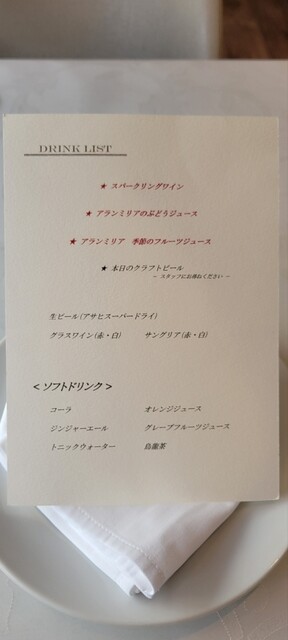 DRINK LIST
★ スパークリングワイン
★ アランミリアのぶどうジュース
★ アランミリア 季節のフルーツジュース
★ 本日のクラフトビール
～ スタッフにお尋ねください ～
生ビール(アサヒスーパードライ)
グラスワイン(赤・白) サングリア(赤・白)
< ソフトドリンク >
コーラ オレンジジュース
ジンジャーエール グレープフルーツジュース
トニックウォーター 烏龍茶